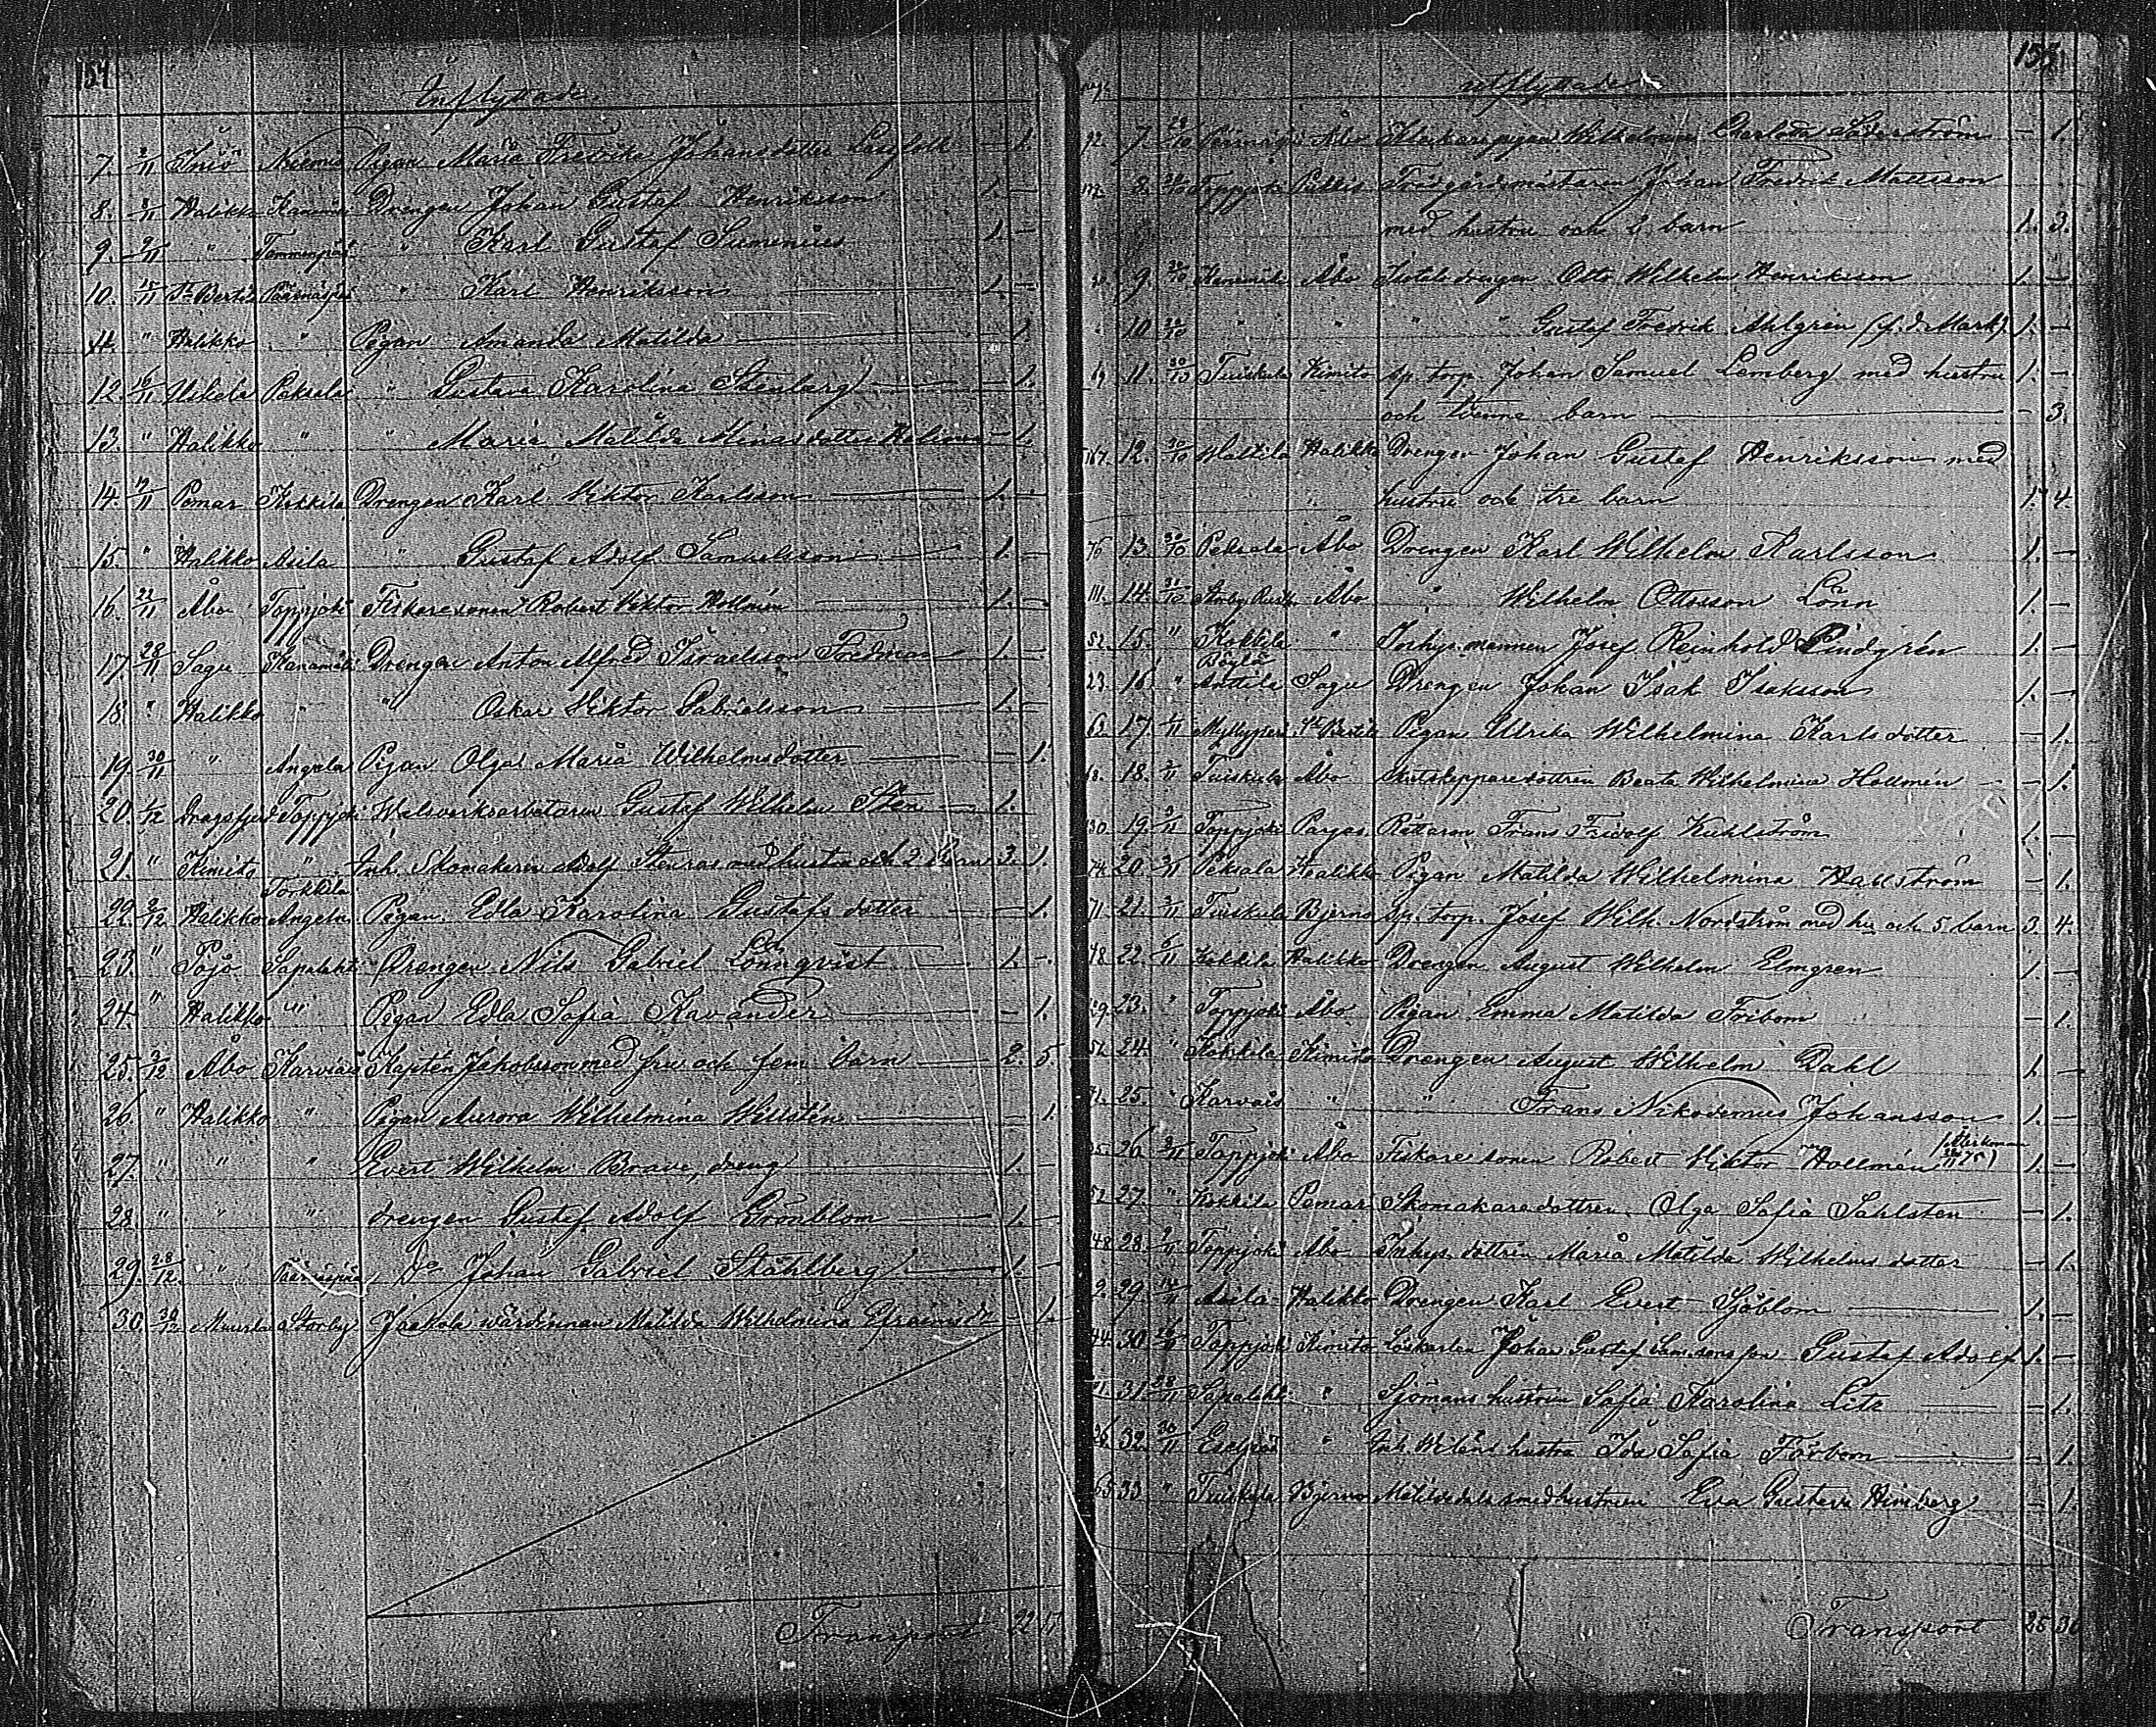 154
Inflyttade
7. 2/11 Iniö Niemis Pigan Maria Fredrika Johansdotter — 1.
8. 8/11 Halikko Drengen Johan Gustaf Henriksson 1. —
9. 9/11 " " Karl Gustaf Sumenius 1. —
10. 15/11 St Bertils " Karl Henriksson 1. —
11. " Halikko " Pigan Amanda Matilda — 1.
12. 16/11 Uskela Peksala " Gustava Karolina Stenberg — 1.
13. " Halikko " " Maria Matilda — 1.
14. 17/11 Pemar Kokkila Drengen Karl Viktor Karlsson 1. —
15. " Halikko Asila " Gustaf Adolf Samuelsson 1. —
16. 22/11 Åbo Toppjoki Fiskaresonen Robert Viktor Hollmén 1. —
17. 28/11 Sagu Drengen Anton Alfred Israelsson Fredman 1. —
18. " Halikko " " Oskar Viktor Gabrielsson 1. —
19. 30/11 " Angela Pigan Olga Maria Wilhelmsdotter — 1.
20. 1/12 Dragsfjerd Toppjoki Walsverksarbetaren Gustaf Wilhelm Sten 1.
21. " Kimito " Inh. Skomakaren Adolf Stenros med hustru och 2 barn 3. 1.
Torkkila
22. 2/12 Halikko Angela Pigan Edla Karolina Gustafs dotter — 1.
23. " Pojo Sapalahti Drengen Nils Gabriel Lönnqvist 1. —
24. " Halikko " Pigan Edla Sofia Kavander — 1.
25. 3/12 Åbo Karviais Kapten Jakobsson med fru och fem barn 2. 5.
26. " Halikko " Pigan Aurora Wilhelmina Willstén — 1.
27. " " " Evert Wilhelm Brave, dreng 1. —
28. " " " drengen Gustaf Adolf Grönblom 1. —
29. 28/12 " do Johan Gabriel Ståhlberg 1. —
30. 30/12 Muurla Storby Jaakola värdinnan Matilda Wilhelmina Efraimsdr — 1.
Transport 22 17
155
pag. utflyttade
92. 7. 29/10 Åbo Wilhelmina Charlotta Söderström — 1.
8. Toppjoki Pallis Trädgårdsmästaren Johan Fredrik Mattsson
med hustru och 2 barn 1. 3.
9. 30/10 Åbo Drengen Otto Wilhelm Henriksson 1. —
10. 30/10 " " " " Gustaf Fredrik Ahlgren (f.d. Mark) 1. —
69 11. 30/10 Tuiskula Kimito sp. torp. Johan Samuel Lemberg med hustru 1. —
och tvenne barn — 3.
12. 30/10 Waltila Halikko Drengen Johan Gustaf Henriksson med
hustru och tre barn 1. 4.
76 13. 30/10 Peksala Åbo Drengen Karl Wilhelm Karlsson 1. —
111. 14. 31/10 Storby Rusth. Åbo " Wilhelm Ottosson Lönn 1. —
52. 15. " Kokkila " Inhys. mannen Josef Reinhold Lindgrén 1. —
Böylä
23. 16. " Anttila Sagu Drengen Johan Isak Isaksson 1. —
17. 1/11 Myllyperä St Bertils Pigan Ulrika Wilhelmina Karls dotter — 1.
68. 18. 2/11 Tuiskula Åbo Skutskeppare dottren Beata Wilhelmina Hollmén — 1.
130. 19. 3/11 Toppjoki Pargas Rättaren Frans Fridolf Kuhlström 1. —
74. 20. 3/11 Peksala Halikko Pigan Matilda Wilhelmina Hallström — 1.
71. 21. 3/11 Tuiskula Bjerno Sp. torp. Josef Wilh. Nordström med hu och 5 barn 3. 4.
48 22. 5/11 Kokkila Halikko Drengen August Wilhelm Elmgren 1. —
23. " Toppjoki Åbo Pigan Emma Matilda Fribom — 1.
52. 24. " Kokkila Kimito Drengen August Wilhelm Dahl 1. —
25. " Karvais " " Frans Nikodemus Johansson 1. —
26. 8/11 Toppjoki Åbo Fiskare sonen Robert Viktor Hollmén 1. —
52. 27. " Kokkila Pemar Skomakare dottren Olga Sofia Sahlsten — 1.
28. 9/11 Toppjoki Åbo Inhys dottren Maria Matilda Wilhelms dotter — 1.
2. 29. 14/11 Asila Halikko Drengen Karl Evert Sjöblom 1. —
44. 30. 16/11 Toppjoki Kimito Löskarlen Johan Gustaf Samssons son Gustaf Adolf 1. —
31. 28/11 Sapalahti " Sjömans hustrun Sofia Karolina Litz — 1.
26. 32. 30/11 " Inh Wiléns hustru Ida Sofia Forbom — 1.
65. 33. " Tuiskula Bjerno Matildedals smedhustrun Eva Gustava Himberg — 1.
Transport